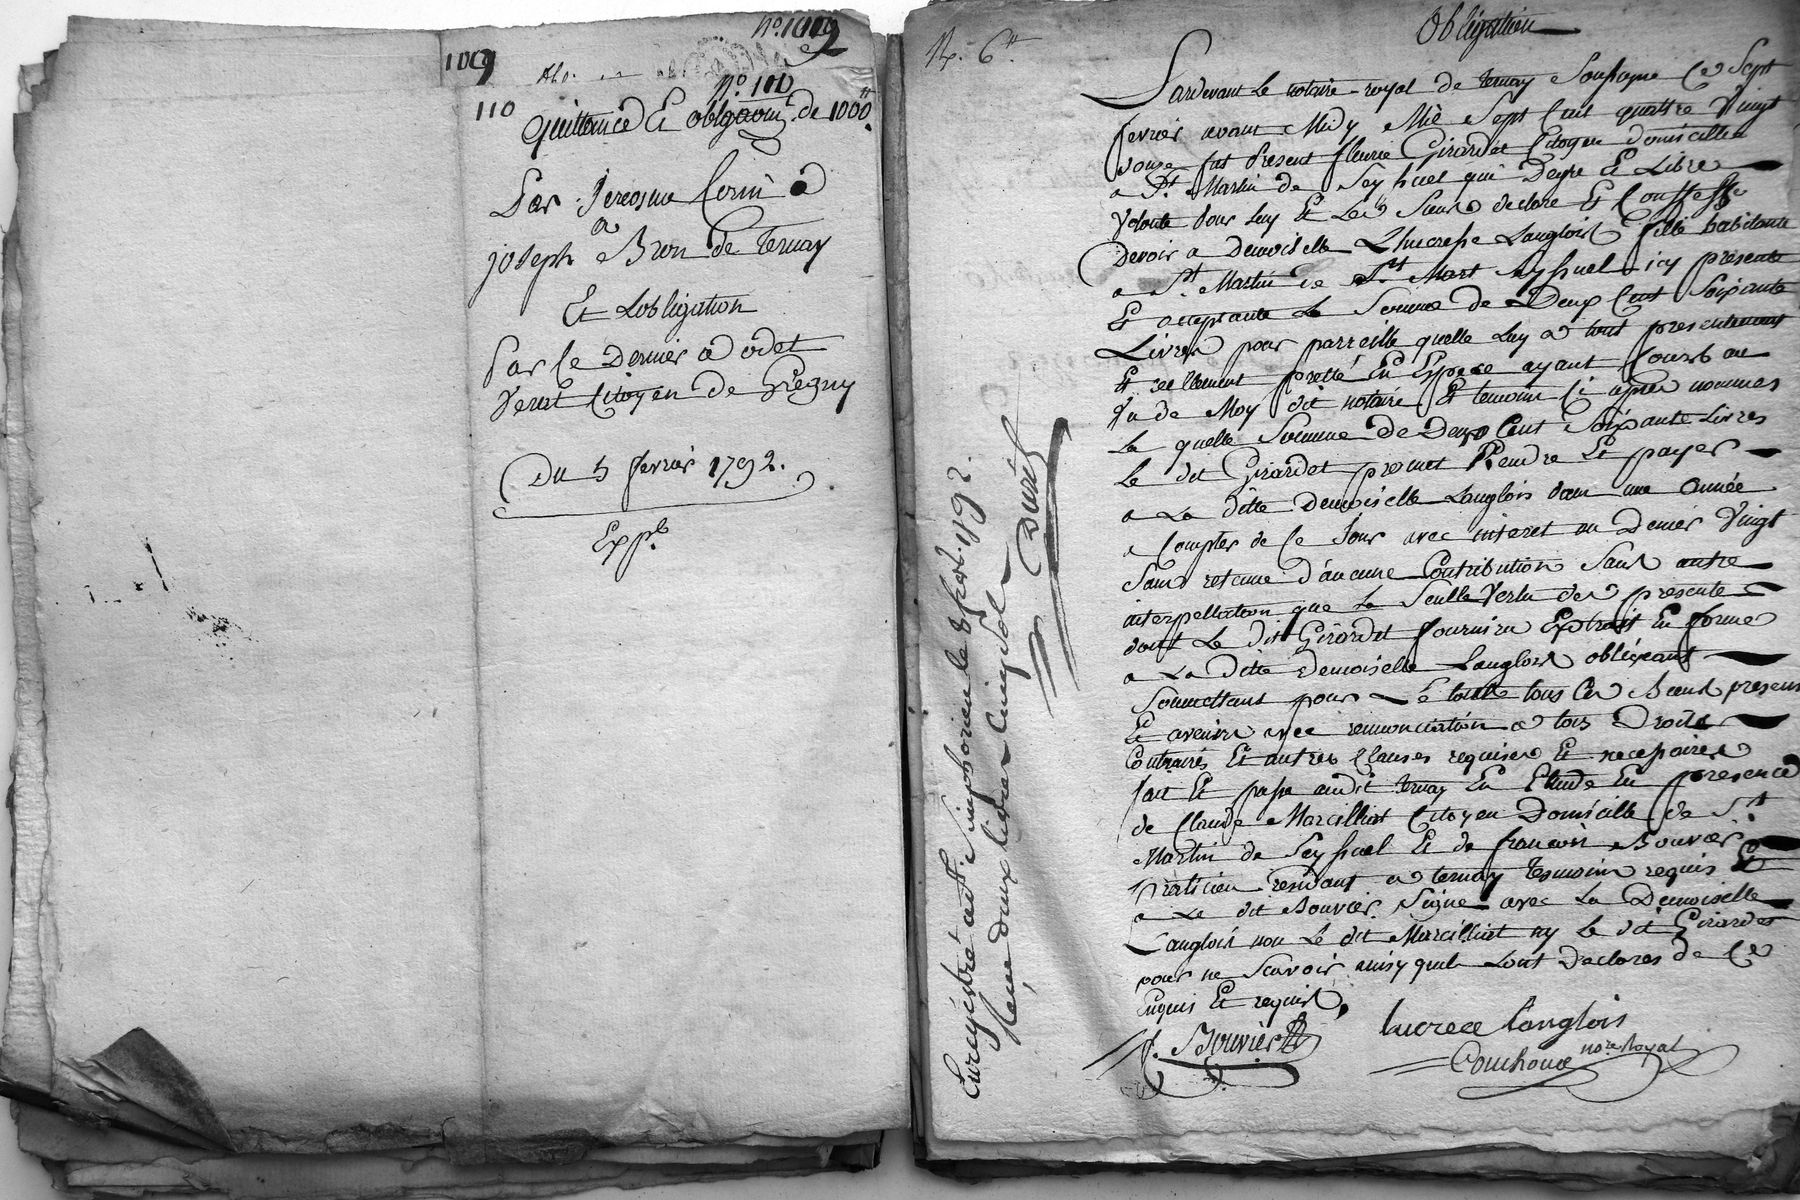 N.º 1009
109
N.º 110
110
Quittance Et obligaon de 1000 ₶
Par Jerosme Cerin a
a
joseph Bron de Ternay
Et Lobligation
Par Ce Dernier a odet
Verut Citoyen de Gregny
Du 5 fevrier 1792.
Exp.
N. 6 ₶
Obligation
Pardevant Le notaire royal de ternay Soussigne Ce Sept
fevrier avant Midy Mil Sept Cent quattre Vingt
douze fut present fleurie Girardet Citoyen domicillie
a St Martin de Seyssuel qui Degre Et Libre
Volonte pour luy Et Les Siens declare Et Confesse
Devoir a demoiselle Lhucresse Langlois fille habitante
a St Martin de St Mart Seyssuel icy presente
Et acceptante La Somme de Deux Cent Soixante
Livres pour parreille quelle luy a tout presentement
Et reellement pretté En Espece ayant Cours au
Vu de Moy dit notaire Et temoins Ci apres nommes
La quelle Somme de Deux Cent Soixante Livres
Le dit Girardet promet Rendre Et payer
a La ditte Demoiselle Langlois dans une année
a Compter de Ce Jour avec interet au Denier Vingt
Sans retenue d'aucune Contribution Sans autre
interpellation que La Seulle Vertu des presente
dont Le dit Girardet fournira Extrait En forme
a La ditte Demoiselle Langlois obligeant
Soumettant pour Le tout tous Ces Biens present
Et avenir avec renonciation a tois Droits
Contraires Et autres Clauses requises Et necessaires
fait Et passe audit ternay En Etude En presence
de Claude Marcilliat Citoyen Domicille de St
Martin de Seyssuel Et de francois Bouvier
praticien residant a ternay temoins requis Et
a Le dit Bouvier Signe avec La Demoiselle
Langlois non Le dit Marcilliat ny le dit Girardet
pour ne Scavoir ainsy quils Lont declares de Ce
Enquis Et requis,
f. Bouvier
lucrece langlois
Couchoud nore Royal
Enregistré a St Simphorien le 8 fevr. 1792.
Reçu deux livres cinq sol
Duret